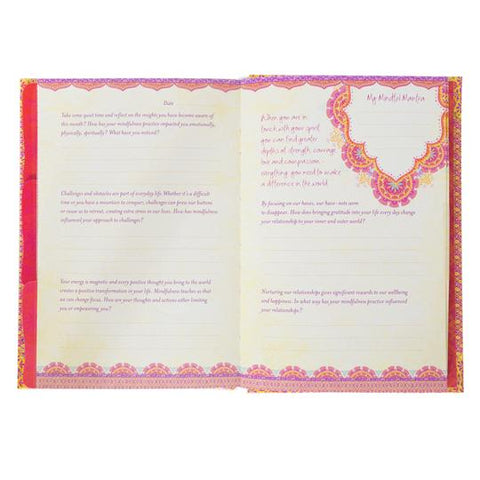 Date
Take some quiet time and reflect on the insights you have become aware of
this month? How has your mindfulness practice impacted you emotionally,
physically, spiritually? What have you noticed?
Challenges and obstacles are part of everyday life. Whether it's a difficult
time or you have a mountain to conquer, challenges can press our buttons
or cause us to retreat, creating extra stress in our lives. How has mindfulness
influenced your approach to challenges?
Your energy is magnetic and every positive thought you bring to the world
creates a positive transformation in your life. Mindfulness teaches us that
we can change focus. How are your thoughts and actions either limiting
you or empowering you?
My Mindful Mantra
When you are in
touch with your spirit
you can find greater
depths of strength, courage
love and compassion...
everything you need to make
a difference in the world.
By focusing on our haves, our have-nots seem
to disappear. How does bringing gratitude into your life every day change
your relationship to your inner and outer world?
Nurturing our relationships gives significant rewards to our wellbeing
and happiness. In what way has your mindfulness practice influenced
your relationships?